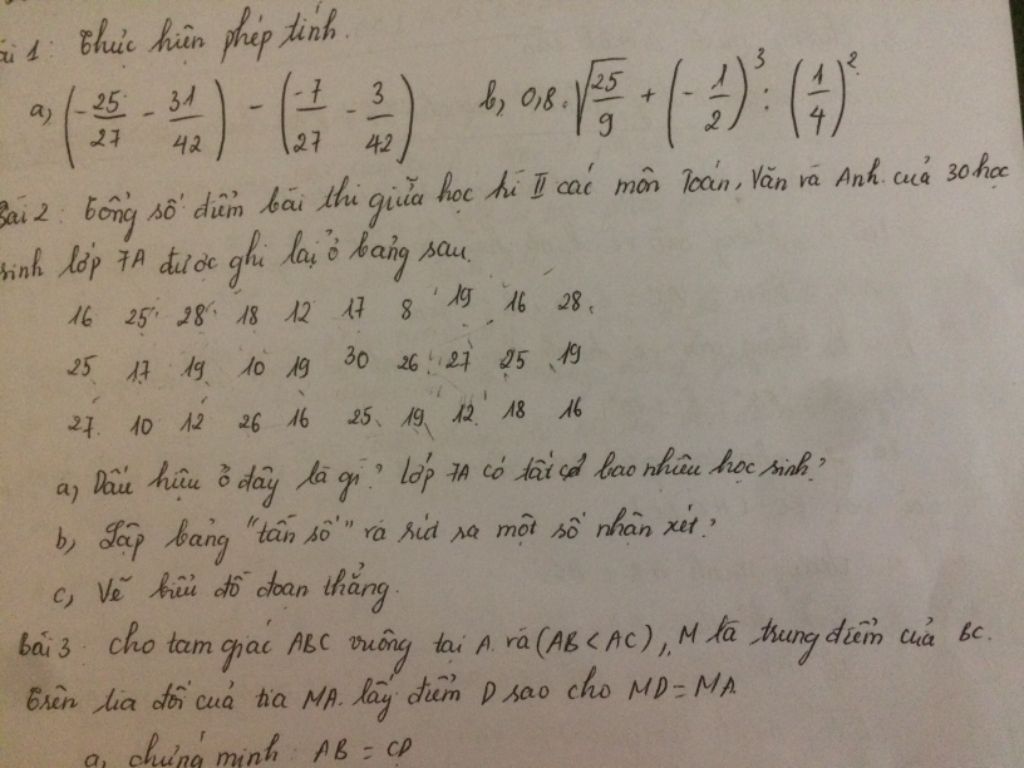 ài 1: Thực hiện phép tính.
a, (-25/27 - 31/42) - (-7/27 - 3/42) b, 0,8.√(25/9) + (-1/2)³ : (1/4)²
Bài 2: Tổng số điểm bài thi giữa học kì II các môn Toán, Văn và Anh của 30 học
sinh lớp 7A được ghi lại ở bảng sau.
16 25 28 18 12 17 8 19 16 28
25 17 19 10 19 30 26 27 25 19
27 10 12 26 16 25 19 12 18 16
a, Dấu hiệu ở đây là gì? Lớp 7A có tất cả bao nhiêu học sinh?
b, Lập bảng "tấn số" và rút ra một số nhận xét?
c, Vẽ biểu đồ đoạn thẳng.
Bài 3. Cho tam giác ABC vuông tại A và (AB < AC), M là trung điểm của BC.
Trên tia đối của tia MA. lấy điểm D sao cho MD = MA
a, chứng minh: AB = CD